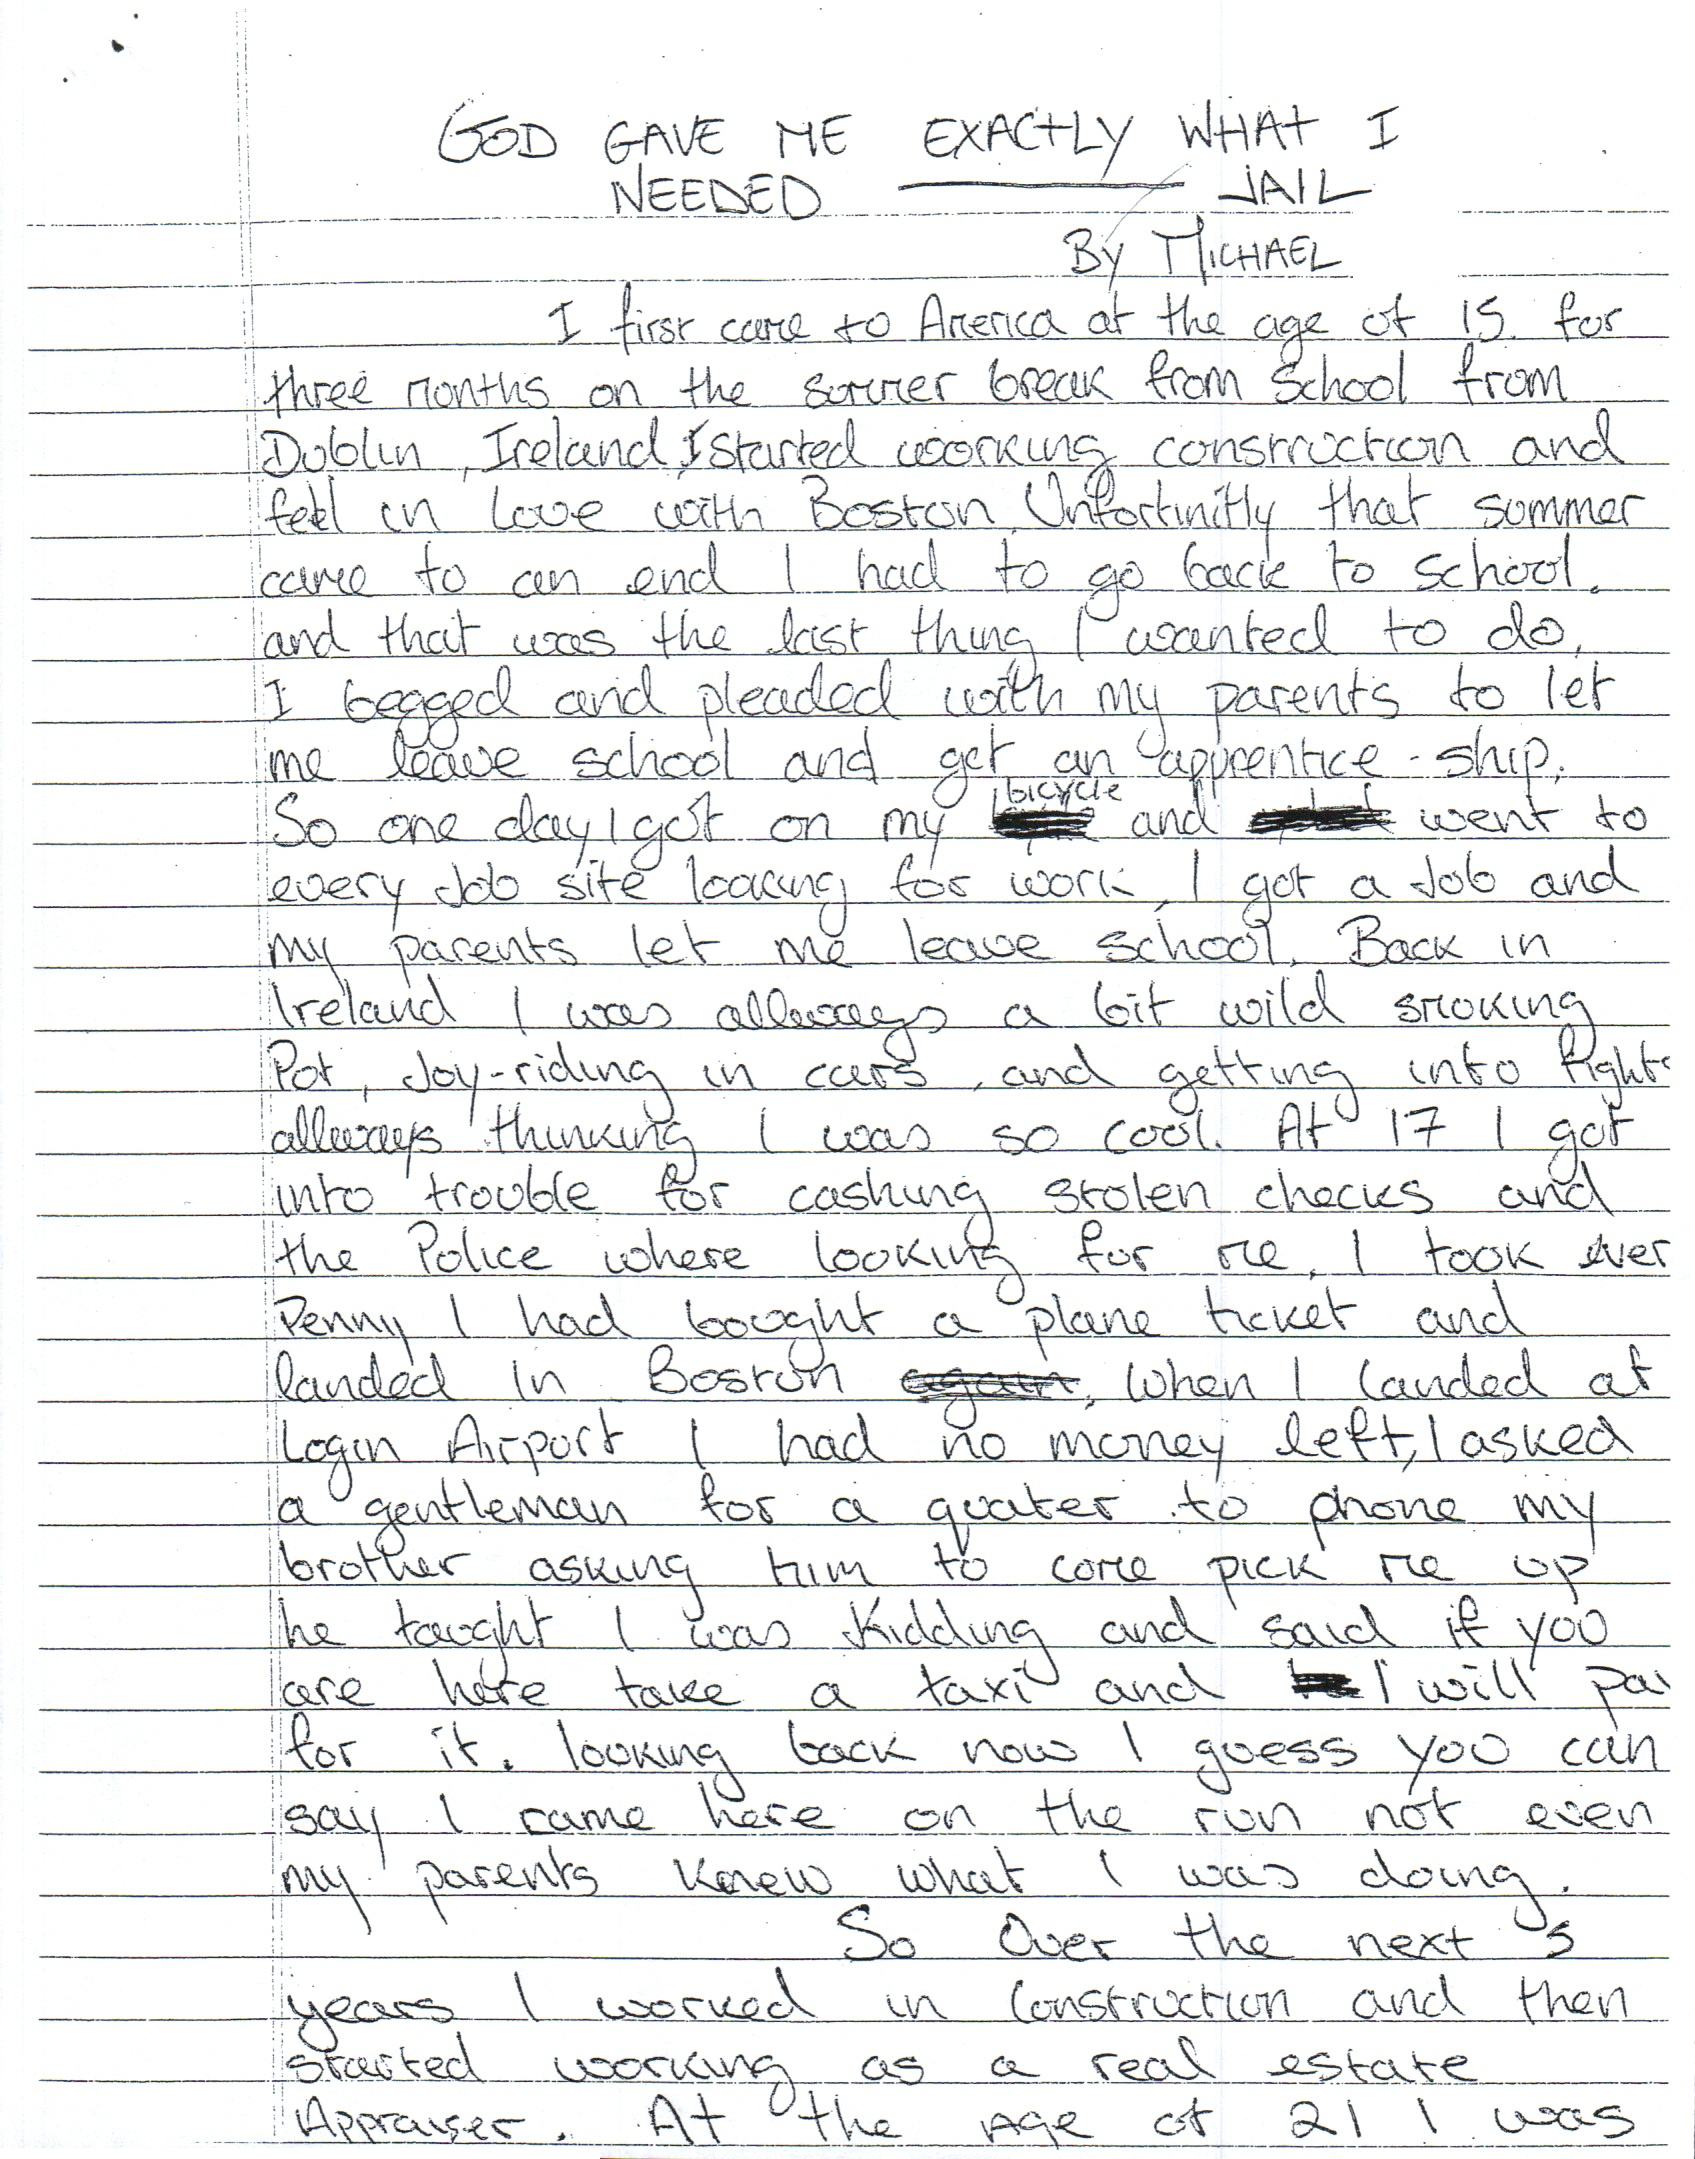 GOD GAVE ME EXACTLY WHAT I
NEEDED ——— JAIL
By MICHAEL
I first came to America at the age of 15. for
three months on the summer break from School from
Dublin, Ireland, I started working construction and
fell in love with Boston. Unfortinitly that summer
came to an end I had to go back to school.
and that was the last thing I wanted to do.
I begged and pleaded with my parents to let
me leave school and get an apprentice-ship.
So one day I got on my bicycle and went to
every Job site looking for work, I got a Job and
my parents let me leave school. Back in
Ireland I was allways a bit wild smoking
Pot, Joy-riding in cars, and getting into fights
allways thinking I was so cool. At 17 I got
into trouble for cashing stolen checks and
the Police where looking for me, I took ever
Penny I had bought a plane ticket and
landed in Boston again, When I landed at
Login Airport I had no money left, I asked
a gentleman for a quater to phone my
brother asking him to come pick me up
he taught I was Kidding and said if you
are here take a taxi and I will pay
for it. looking back now I guess you can
say I came here on the run not even
my parents knew what I was doing.
So Over the next 5
years I worked in Construction and then
started working as a real estate
Appraiser. At the age of 21 I was